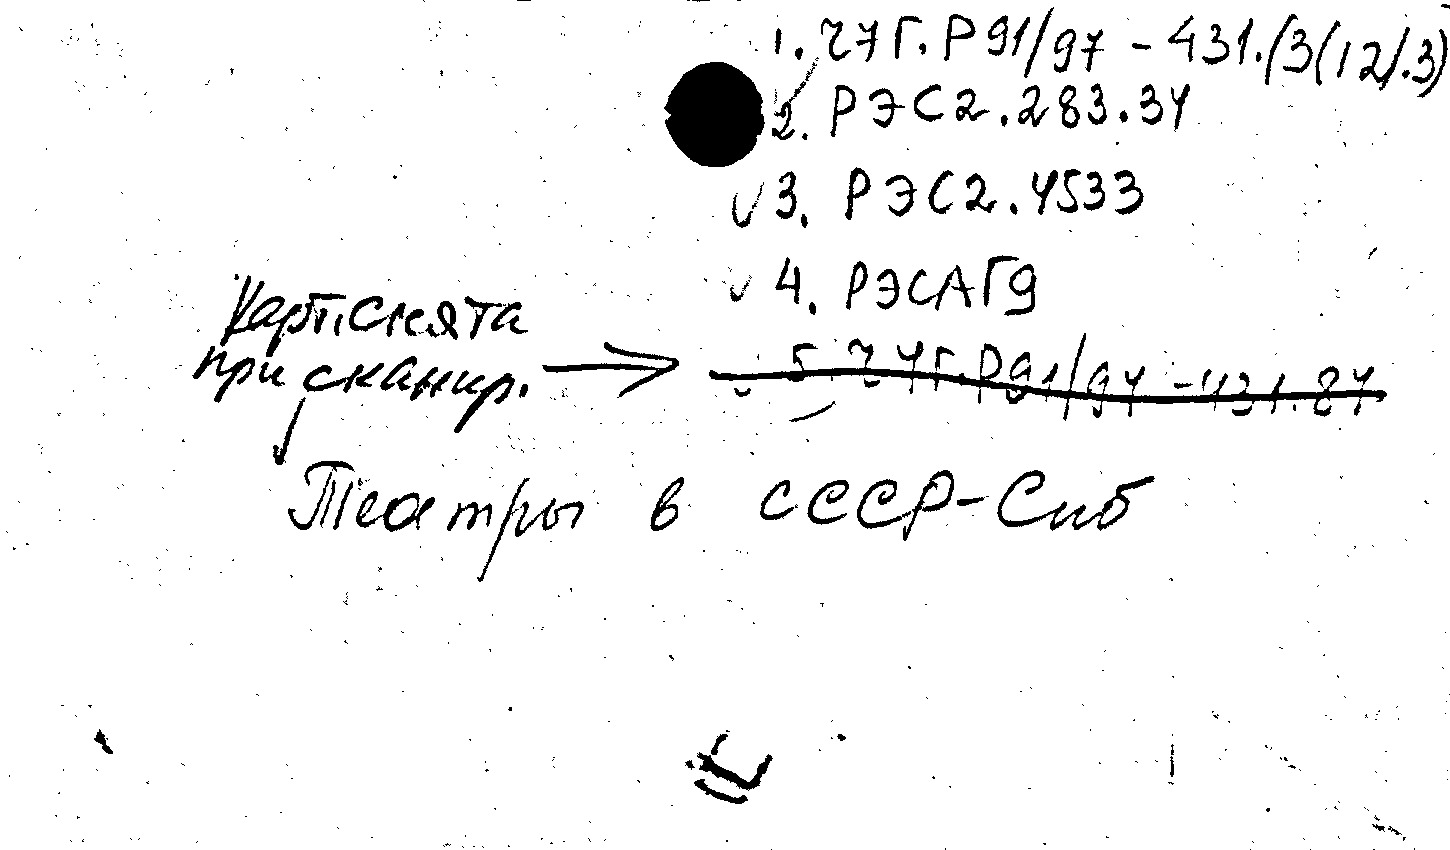 1. Ч7Г.Р91/97 - 431.(3(12/.3)
2. РЭС2.283.34
3. РЭС2.4533
4. РЭСАГ9
Карт. снята
при сканир.
5. Ч4Г.Р91/94 - 431.87
Театры в СССР-Сиб